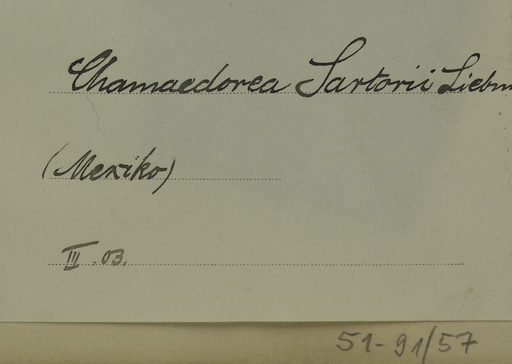 Chamaedorea Sartorii Liebm
(Mexiko)
III. 03.
51-91/57